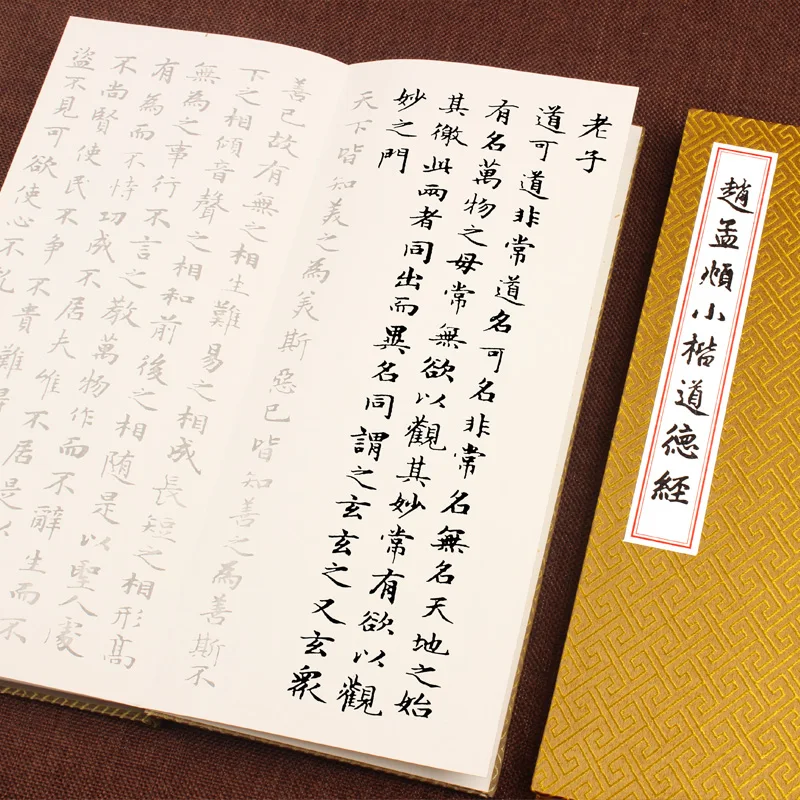 老子
道可道非常道名可名非常名無名天地之始
有名萬物之母常無欲以觀其妙常有欲以觀
其徼此兩者同出而異名同謂之玄玄之又玄眾
妙之門
天下皆知美之為美斯惡已皆知善之為善斯不
善已故有無之相生難易之相成長短之相形高
下之相傾音聲之相和前後之相随是以聖人處
無為之事行不言之教萬物作而不辭生而不
有為而不恃功成不居夫惟不居是以
不尚賢使民不争不貴難
盜不見可欲使心不
趙孟頫小楷道德經